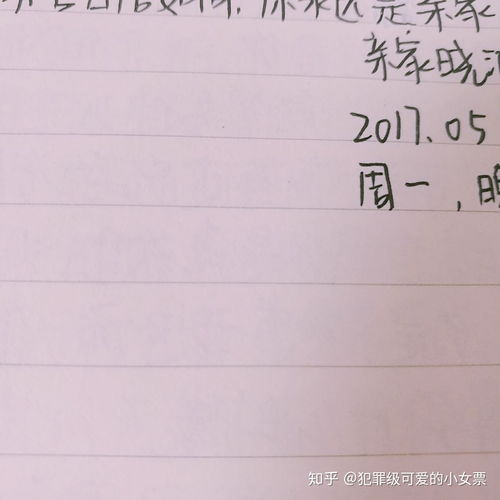 你永远是亲家
亲家晓
2017.05
周一，明
知乎 @犯罪级可爱的小女票